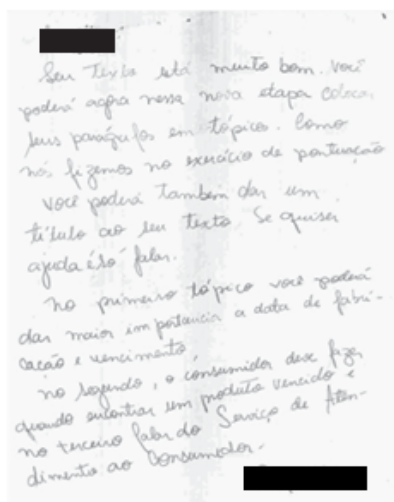 Seu texto está muito bom. Você
poderá agora nessa nova etapa colocar
seus parágrafos em tópico. Como
nós fizemos no exercício de pontuação
Você poderá também dar um
título ao seu texto. Se quiser
ajuda é só falar.
No primeiro tópico você poderá
dar maior importancia a data de fabri-
cação e vencimento.
No segundo, o consumidor deve fazer
quando encontrar um produto vencido e
no terceiro falar do Serviço de Aten-
dimento ao Consumidor.